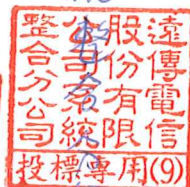 遠傳電信
股份有限
公司系統
整合分公司
投標專用(9)